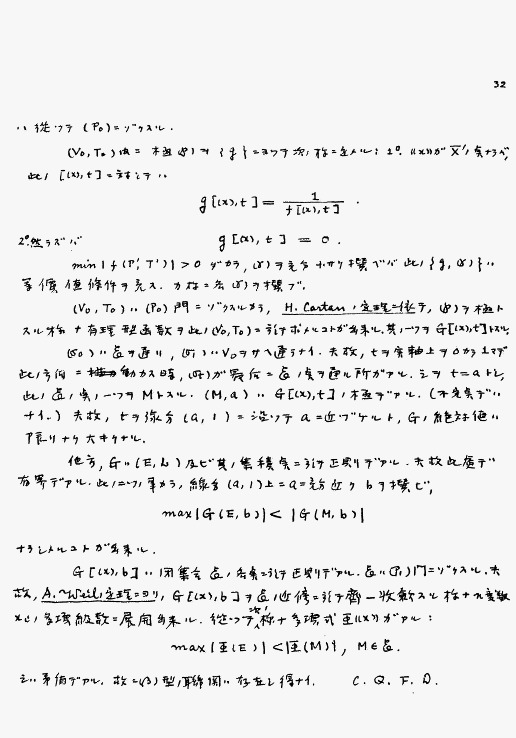 32
ハ 従ツテ (P₀) = ゾクスル.
(V₀, T₀) 内 = 極 (𝒫) ヲ {g} = ヨツテ次ノ様 = 定メル: 1°. ((x)) ガ X′ノ点ナラバ,
此ノ [(x), t] = 対シテハ
g[(x), t] = 1 / f[(x), t] .
2° 然ラズバ g[(x), t] = 0.
min | f(P′, T′) | > 0 ダカラ, (γ) ヲ充分小サク撰ベバ 此ノ {g, (γ)} ハ
等價値條件ヲ充ス. カ様ナ (γ) ヲ撰ブ.
(V₀, T₀) ハ (P₀) 門 = ゾクスルカラ, H. Cartan ノ定理 = 依テ, (𝒫) ヲ極トスル様ナ有理型函数ヲ此ノ (V₀, T₀) = 於テ求メルコトガ出来ル. 其ノ一ツヲ G[(x), t] トスル.
(σ₀) ハ ヲ通リ, (σ₁) ハ V₀ ヲサヘ通ラナイ. 夫故, t ヲ実軸上ヲ 0 カラ 1 マデ
此ノ方向 = 動カス時, (σₜ) ガ最后 = 点ヲ通ル所ガアル. 之ヲ t = a トシ,
此ノ 点ノ一ツヲ M トスル. (M, a) ハ G[(x), t] ノ極デアル. (不定点デハ
ナイ.) 夫故, t ヲ線分 (a, 1) = 沿ツテ a = 近ヅケルト, G ノ絶対値ハ
限リナク大キクナル.
他方, G ハ (E, b) 及ビ其ノ集積点 = 於テ正則デアル. 夫故此處デ
有界デアル. 此ノ二ツノ事カラ, 線分 (a, 1) 上 = a = 充分近ク b ヲ撰ビ,
max | G(E, b) | < | G(M, b) |
ナラシメルコトガ出来ル.
G[(x), b] ハ 閉集合 ノ各点 = 於テ正則デアル. ハ (P₀) 門 = ゾクスル. 夫
故, A. Weil ノ定理 = ヨリ, G[(x), b] ヲ ノ近傍 = 於テ齊一収斂スル様ナ n 変数
(x) ノ多項級数 = 展開出来ル. 従ツテ次ノ様ナ多項式 Ξ((x)) ガアル:
max | Ξ(E) | < | Ξ(M) |, M ∈
之ハ矛循デアル. 故 = (β) 型ノ聯關ハ存在シ得ナイ. C. Q. F. D.